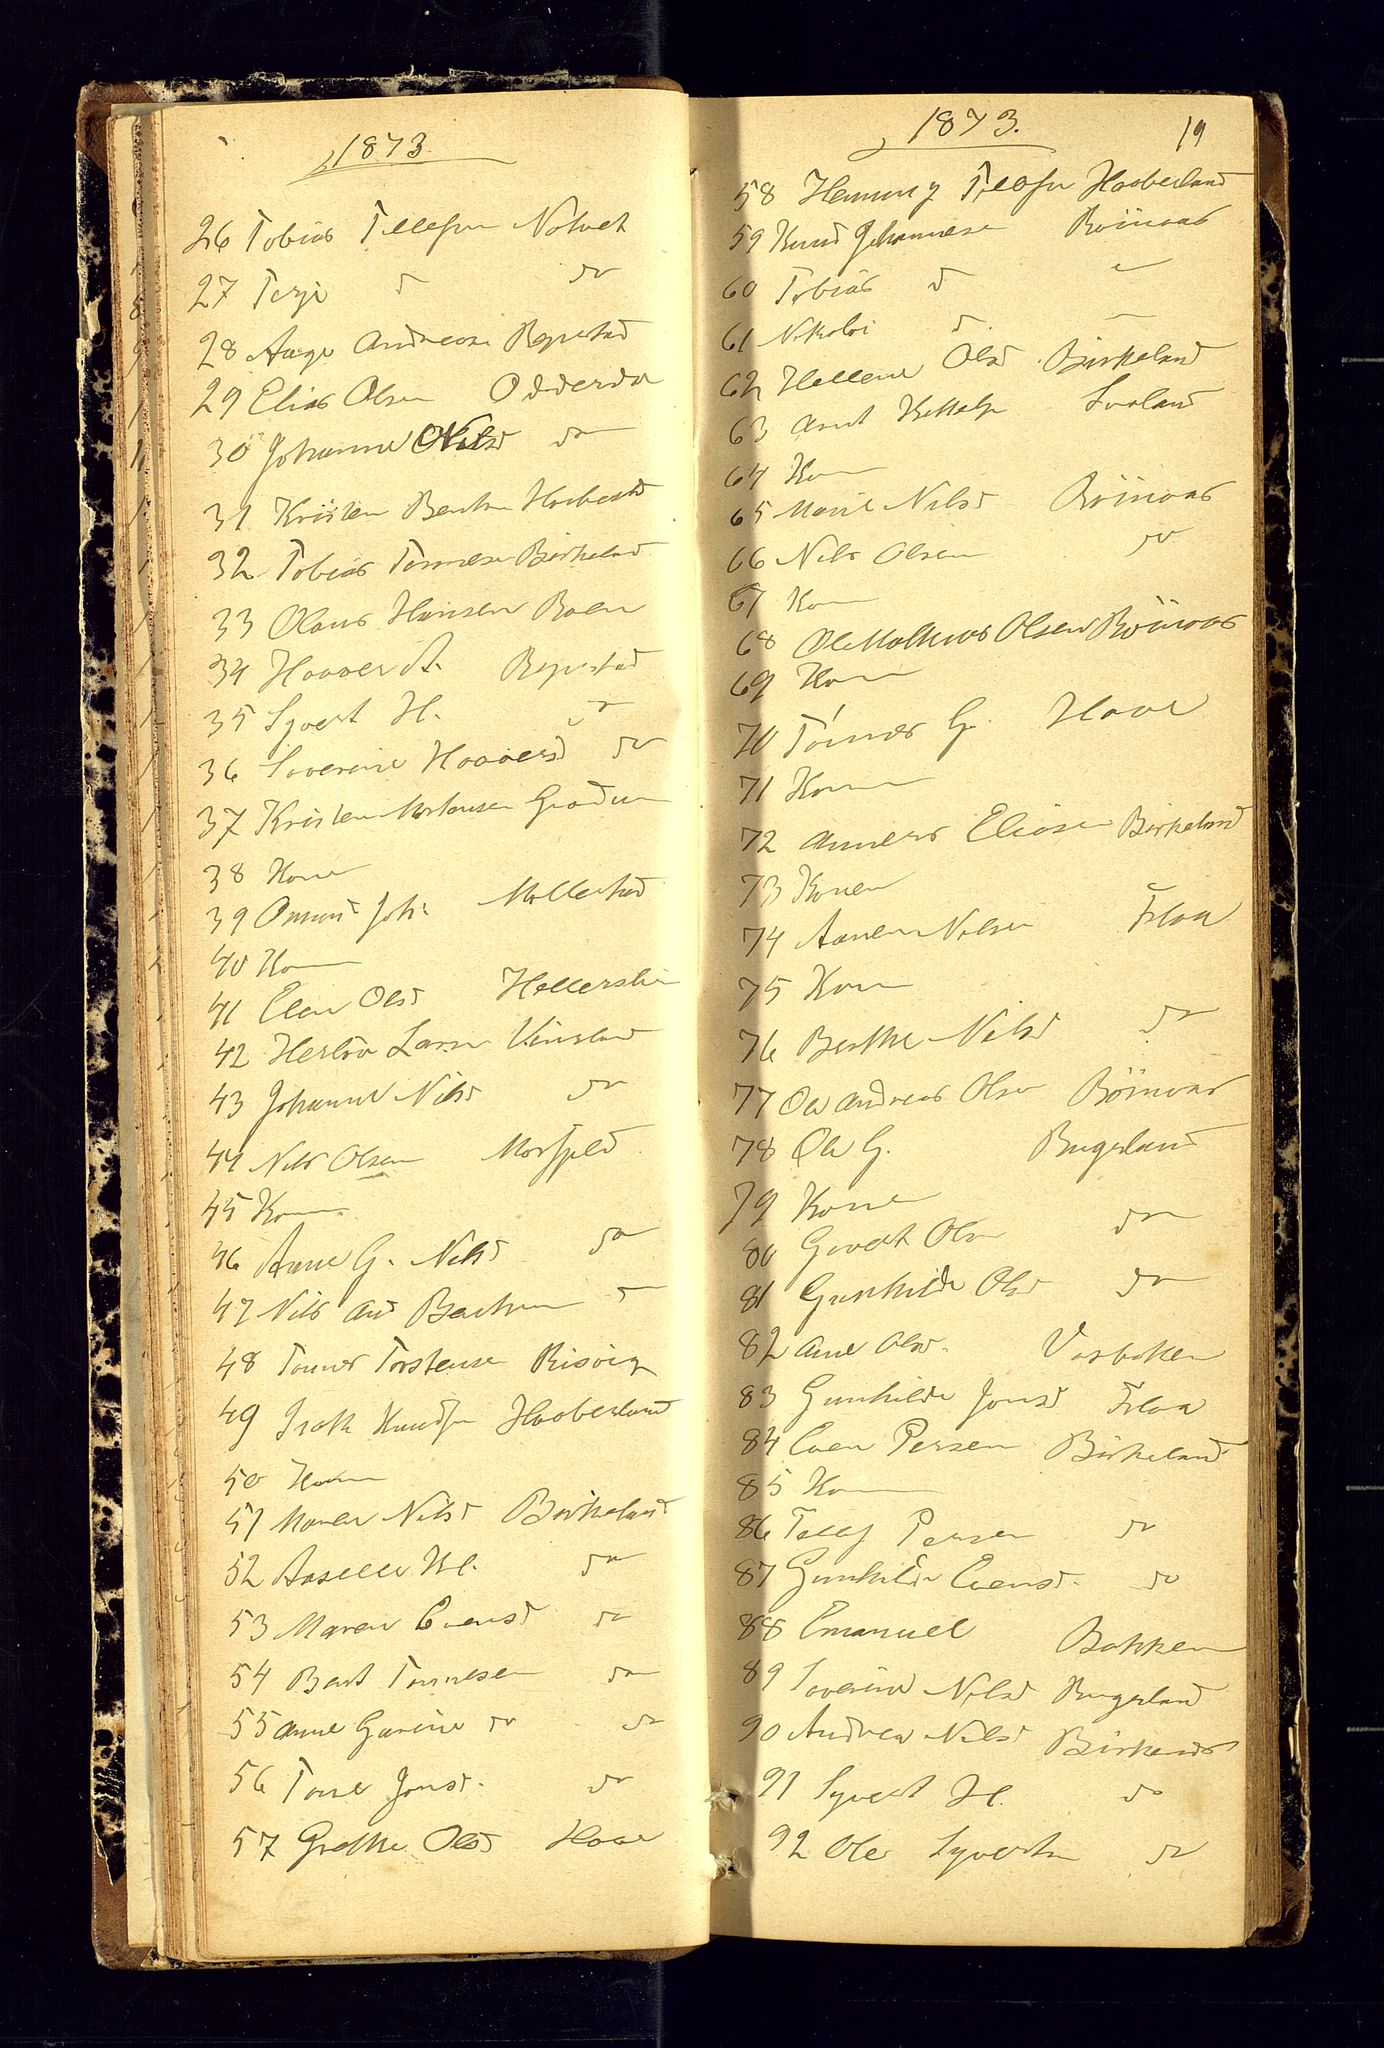 1873.
26 Tobias Tellefsen Nolvet
27 Terje do do
28 Aage Andreasen Repstad
29 Elias Olsen Odderdal
30 Johanne Nilsd do
31 Kristen Bentsen
32 Tobias Tønnesen Birkeland
33 Olaus Hansen Boen
34 Haaver A. Repstad
35 Syvert H. do
36 Severine Haaversd do
37 Kristen Mortensen Grødum
38 Kone
39 Joh. Mollestad
40 Kone
41 Elen Olsd
42 Herlov Larsen
43 Johanne Nilsd do
44 Nils Olsen Mosfjeld
45 Kone
46 Anne G. Nilsd do
47 Nils And Bentsen do
48 Tønnes Torstensen
49 Isak Knudsen Haaberland
50 Kone
51 Maren Nilsd Birkeland
52 Aaselle Kl. do
53 Maren Evensd do
54 Bent Tønnesen do
55 Anne Gurine do do
56 Tone Jonsd. do
57 Grethe Olsd Haae
1873.
19
58 Henning Tellefsen Haaberland
59 Knud Johannesen Röinaas
60 Tobias do
61 Nikolai do
62 Hellene Olsd Birkeland
63 Anut
64 Kone
65 Marie Nilsd Röinaas
66 Nils Olsen do
67 Kone
68 Ole Mathias Olsen Röinaas
69 Kone
70 Tønnes G. Haae
71 Kone
72 Anners Eliasen Birkeland
73 Konen
74 Aanen Nilsen Flaa
75 Kone
76 Berthe Nilsd do
77 Ole Andreas Olsen Röinaas
78 Ole G. Rugesland
79 Kone
80 Sivert Olsen do
81 Gunhilde Olsd do
82 Ane Olsd. Vasbakken
83 Gunhilde Jonsd Flaa
84 Even Persen Birkeland
85 Kone
86 Tellef Persen do
87 Gunhilde Evensd. do
88 Emanuel Bakken
89 Severine Nilsd Rugesland
90 Andrea Nilsd Birkeland
91 Syvert H. do
92 Ole Syvertsen do